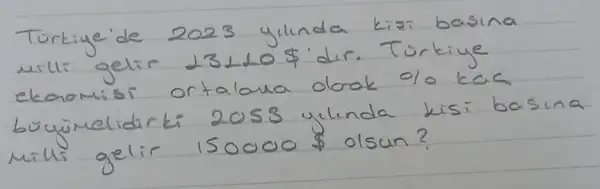 Türkiye'de 2023 yılında kişi başına
milli gelir 13110 $'dır. Türkiye
ekonomisi ortalama olarak % kaç
büyümelidirki 2053 yılında kişi başına
Milli gelir 150000 $ olsun?